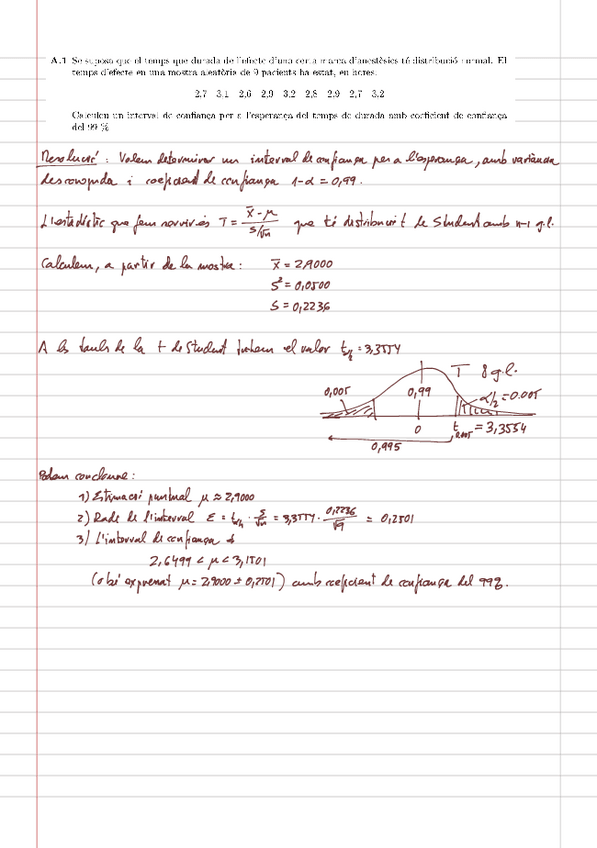 A.1 Se suposa que el temps que durada de l'efecte d'una certa marca d'anestèsics té distribució normal. El
temps d'efecte en una mostra aleatòria de 9 pacients ha estat, en hores:
2,7 3,1 2,6 2,9 3,2 2,8 2,9 2,7 3,2
Calculeu un interval de confiança per a l'esperança del temps de durada amb coeficient de confiança
del 99 %
Resolució: Volem determinar un interval de confiança per a l'esperança, amb variància
desconeguda i coeficient de confiança 1-α = 0,99.
L'estadístic que fem servir és T = (x̄ - μ)/(S/√n) que té distribució t de Student amb n-1 g.l.
Calculem, a partir de la mostra: x̄ = 2,9000
S² = 0,0500
S = 0,2236
A les taules de la t de Student trobem el valor t_α/2 = 3,3554
T 8 g.l.
0,005 0,99 α/2 = 0.005
0 t_0,005 = 3,3554
0,995
Podem concloure:
1) Estimació puntual μ ≈ 2,9000
2) Radi de l'interval ε = t_α/2 · S/√n = 3,3554 · 0,2236/√9 = 0,2501
3) L'interval de confiança és
2,6499 < μ < 3,1501
(o bé expressat μ = 2,9000 ± 0,2501) amb coeficient de confiança del 99%.